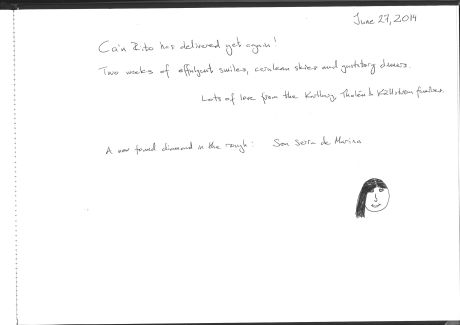 June 27, 2014
Ca'n Rito has delivered yet again!
Two weeks of effulgent smiles, cerulean skies and gustatory dinners.
Lots of love from the Tholén & Källström families.
A new found diamond in the rough: Son Serra de Marina